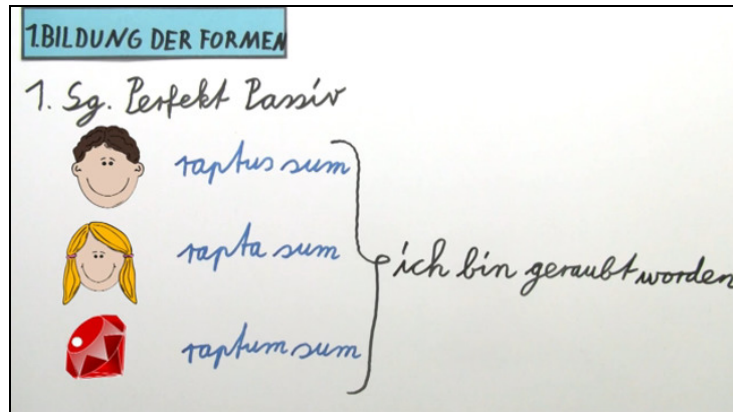 1.BILDUNG DER FORMEN
1. Sg. Perfekt Passiv
raptus sum
rapta sum
raptum sum
ich bin geraubt worden